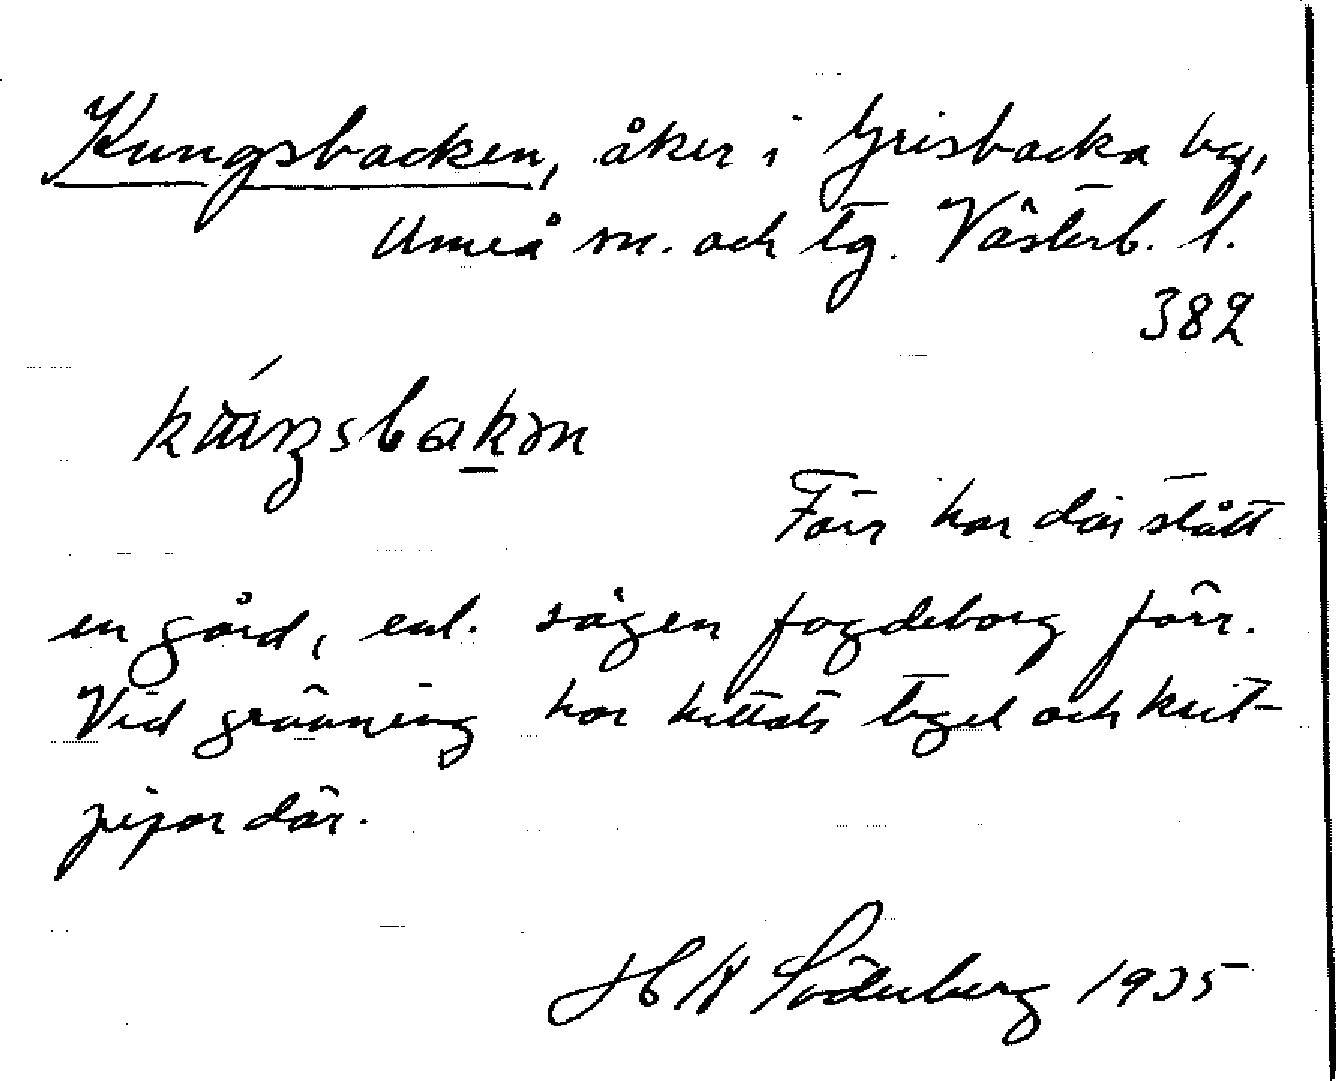 Kungsbacken, åker i Grisbacka by,
Umeå sn. och tg. Västerb. l.
382
Förr har där stått
en gård, enl. sägen fogdeborg förr.
Vid grävning har hittats tegel och krit-
pipor där.
H W Söderberg 1935